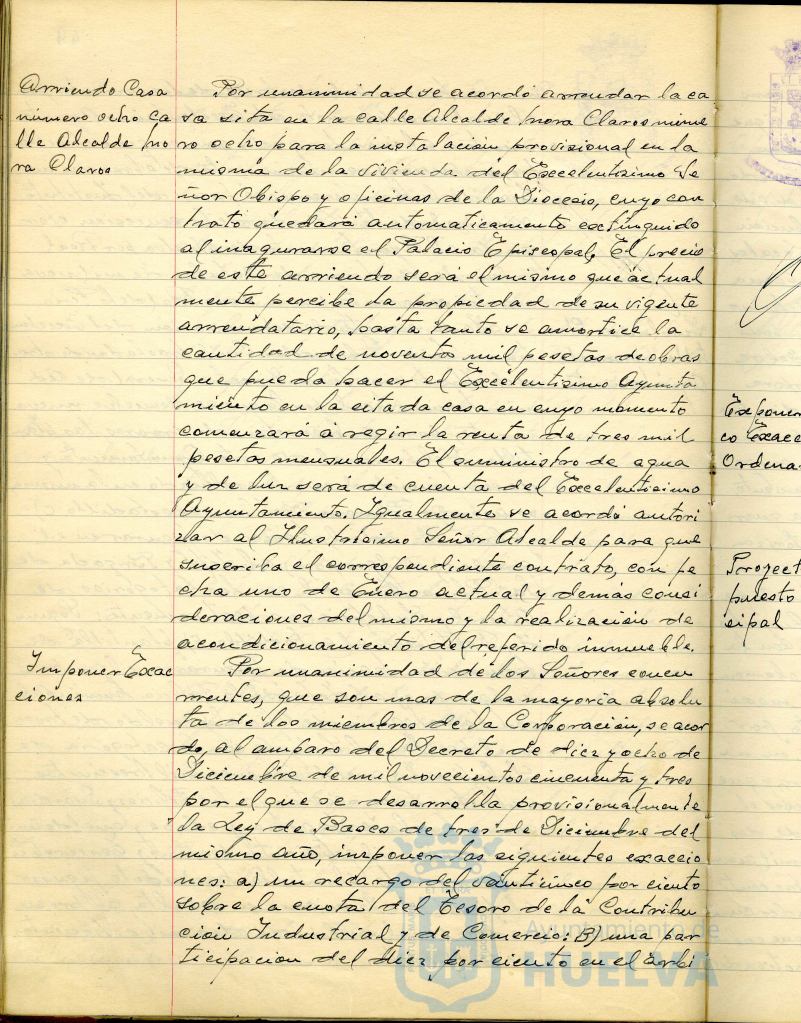 Arriendo Casa
número ocho ca
lle Alcalde Mo
ra Claros
Por unanimidad se acordó arrendar la ca
sa sita en la calle Alcalde Mora Claros núme
ro ocho para la instalación provisional en la
misma de la vivienda del Excelentísimo Se
ñor Obispo y oficinas de la Diocecis, cuyo con
trato quedará automaticamente extinguido
al inagurarse el Palacio Episcopal. El precio
de este arriendo será el mismo que actual
mente percibe la propiedad de su vigente
arrendatario, hasta tanto se amortice la
cantidad de noventa mil pesetas de obras
que pueda hacer el Excelentisimo Ayunta
miento en la citada casa en cuyo momento
comenzará á regir la renta de tres mil
pesetas mensuales. El suministro de agua
y de luz será de cuenta del Excelentisimo
Ayuntamiento. Igualmente se acordó autori
zar al Ilustrisimo Señor Alcalde para que
suscriba el correspondiente contrato, con fe
cha uno de Enero actual y demás consi
deraciones del mismo y la realización de
acondicionamiento del referido inmueble.
Imponer Exac
ciones
Por unanimidad de los Señores concu
rrentes, que son mas de la mayoria absolu
ta de los miembros de la Corporación, se acor
do, al amparo del Decreto de diez y ocho de
Diciembre de mil novecientos cincuenta y tres
por el que se desarrolla provisionalmente
la Ley de Bases de tres de Diciembre del
mismo año, imponer las siguientes exaccio
nes: a) un recargo del vinticinco por ciento
sobre la cuota del Tesoro de la Contribu
ción Industrial y de Comercio: B) una par
ticipacion del diez por ciento en el Arbi
Exponer
co Exacc
Ordena
Proyect
puesto
cipal
Ayuntamiento de
HUELVA